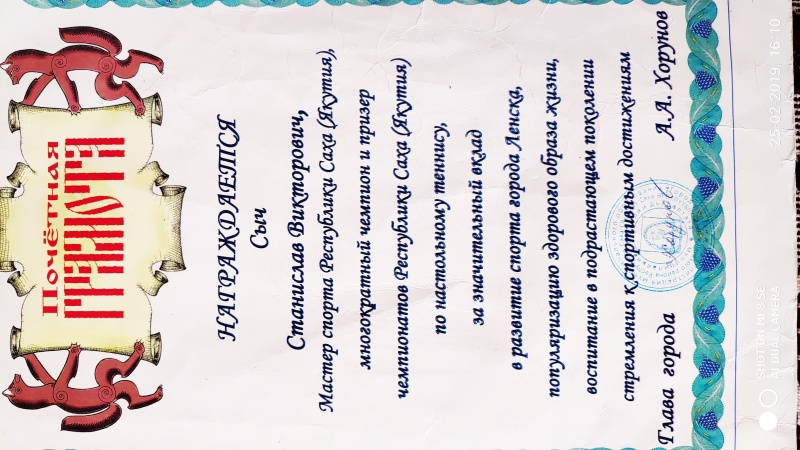 Почётная
ГРАМОТА
НАГРАЖДАЕТСЯ
Сыч
Станислав Викторович,
Мастер спорта Республики Саха (Якутия),
многократный чемпион и призер
чемпионатов Республики Саха (Якутия)
по настольному теннису,
за значительный вклад
в развитие спорта города Ленска,
популяризацию здорового образа жизни,
воспитание в подрастающем поколении
стремления к спортивным достижениям
Глава города А.А. Хорунов
SHOT ON MI 8 SE
AI DUAL CAMERA
25-02-2019 16:10